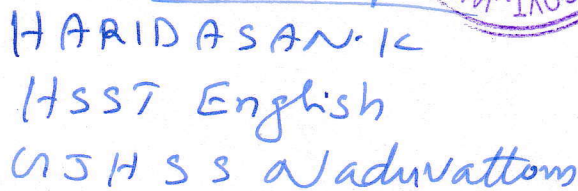 HARIDASAN. K
HSST English
GJHSS Naduvattom